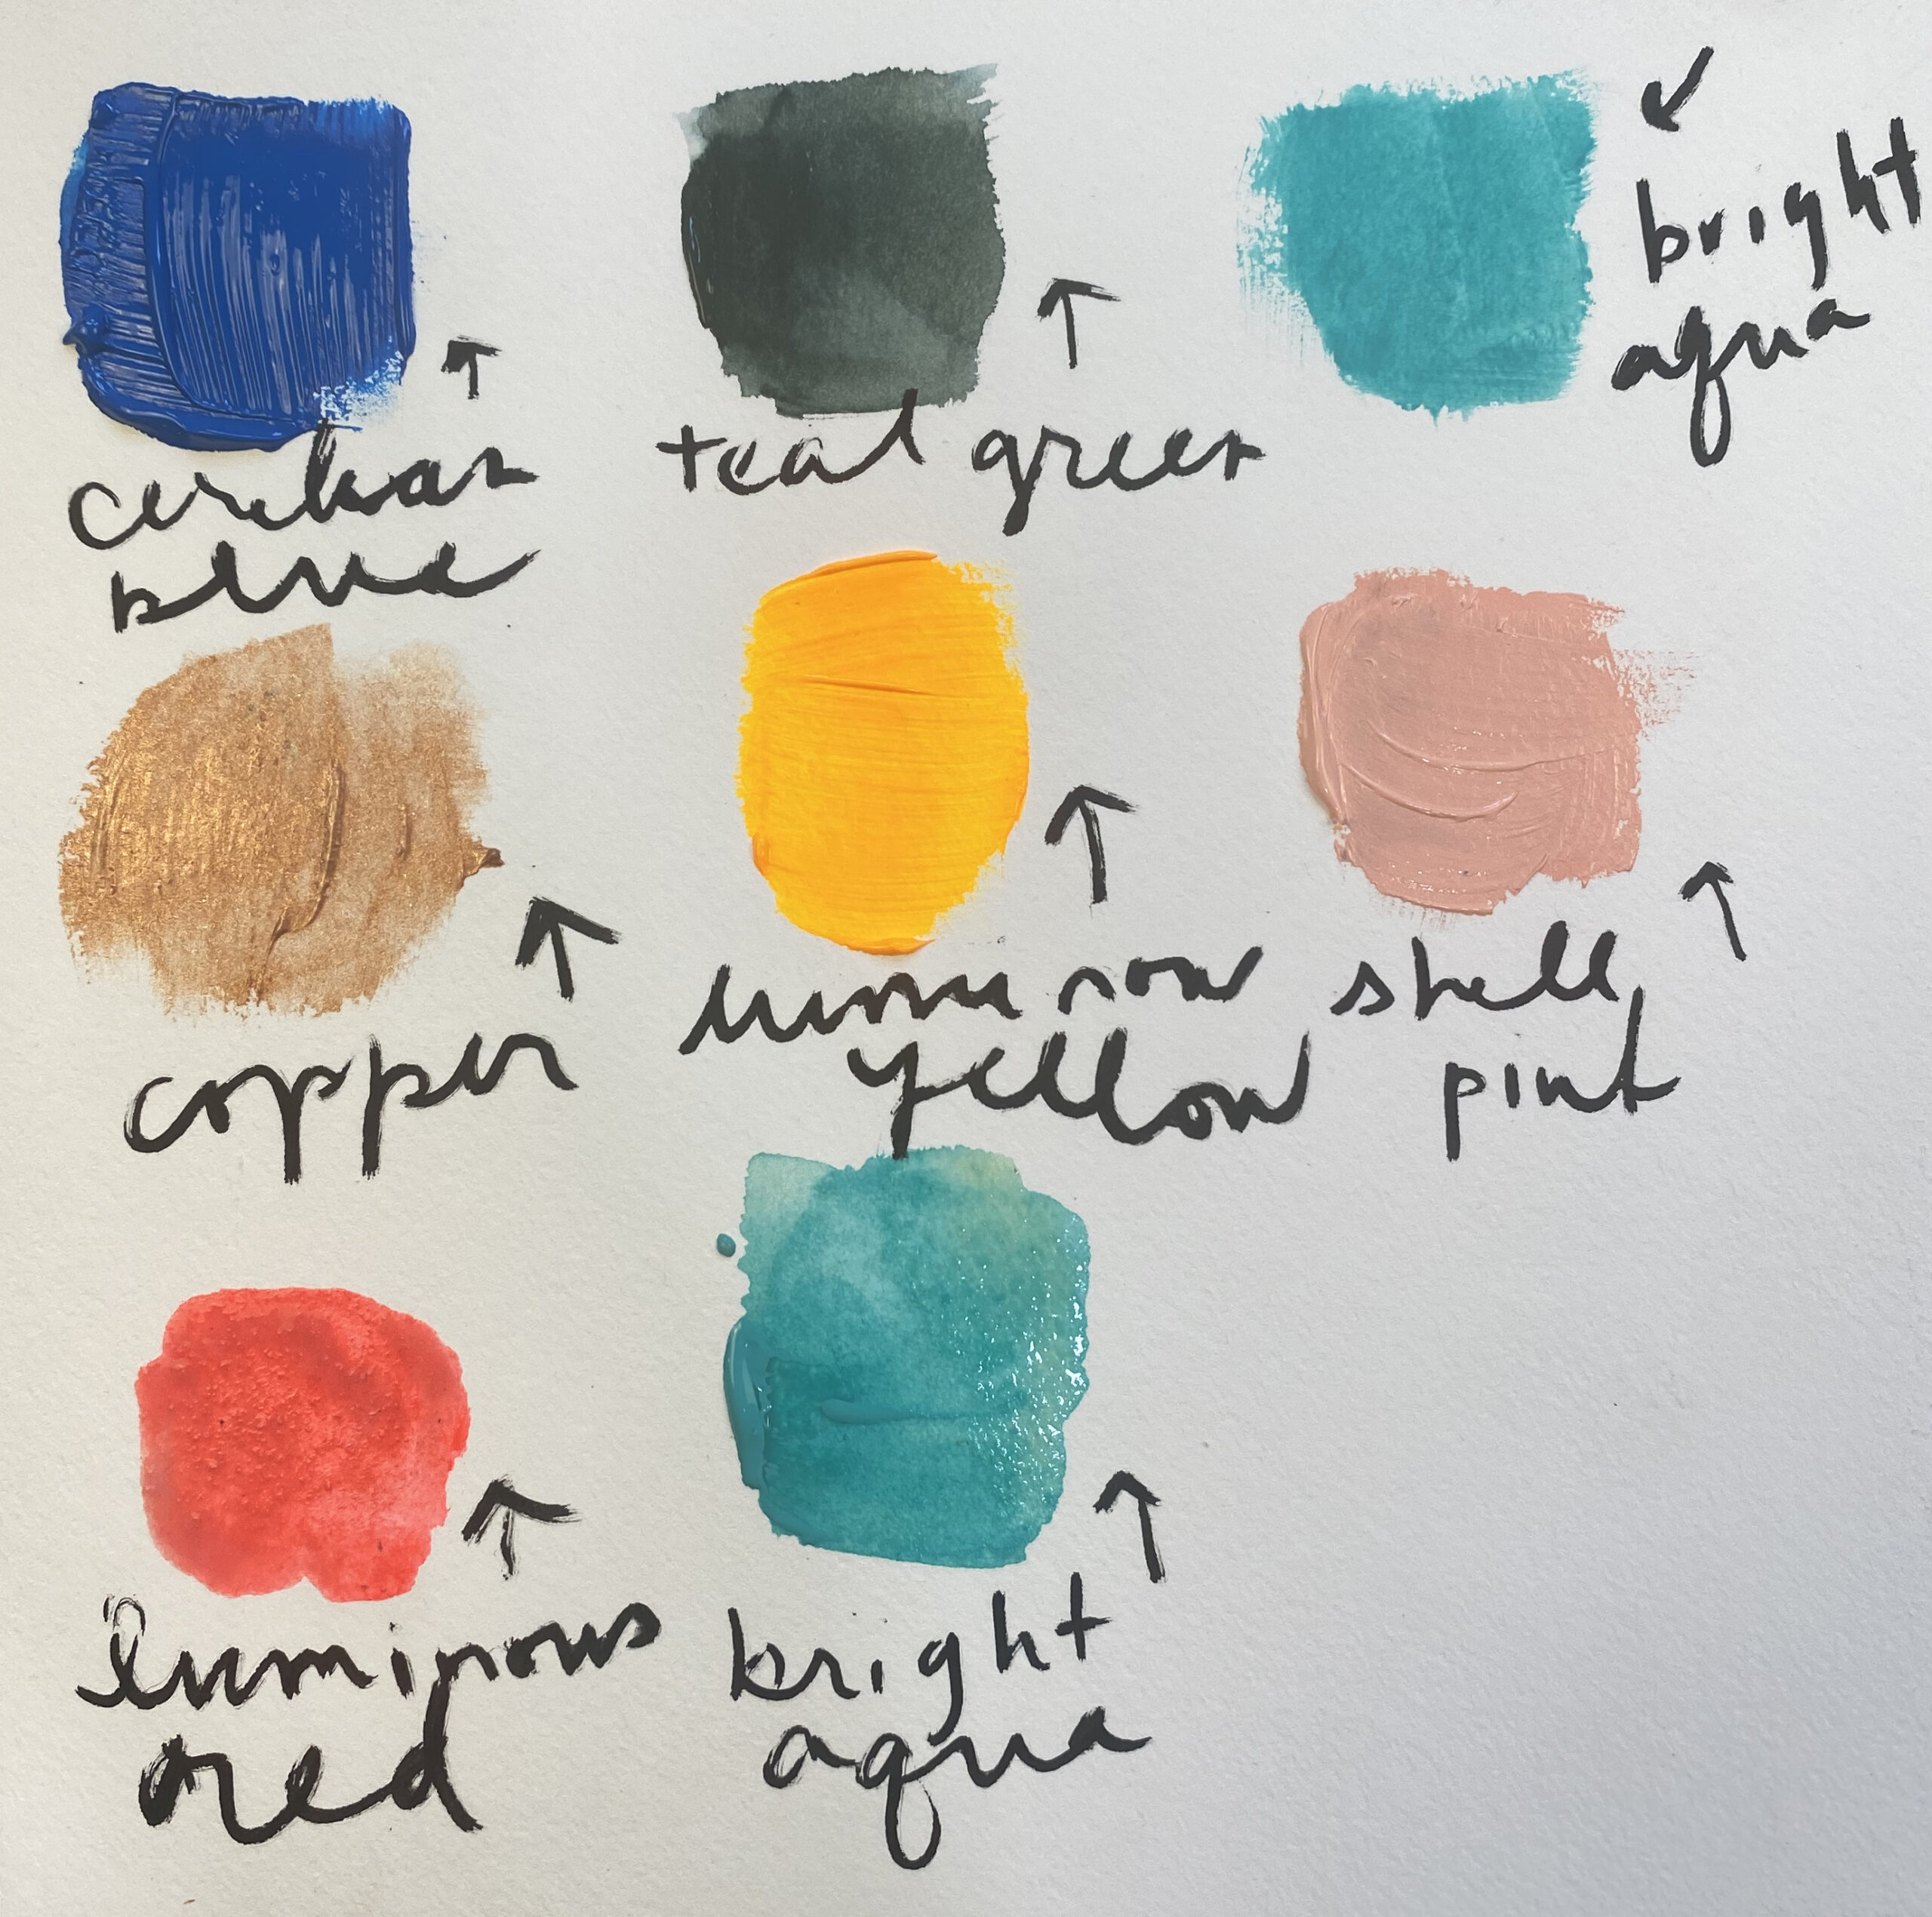 cerulean
blue
teal green
bright
aqua
copper
luminous
yellow
shell
pink
luminous
red
bright
aqua